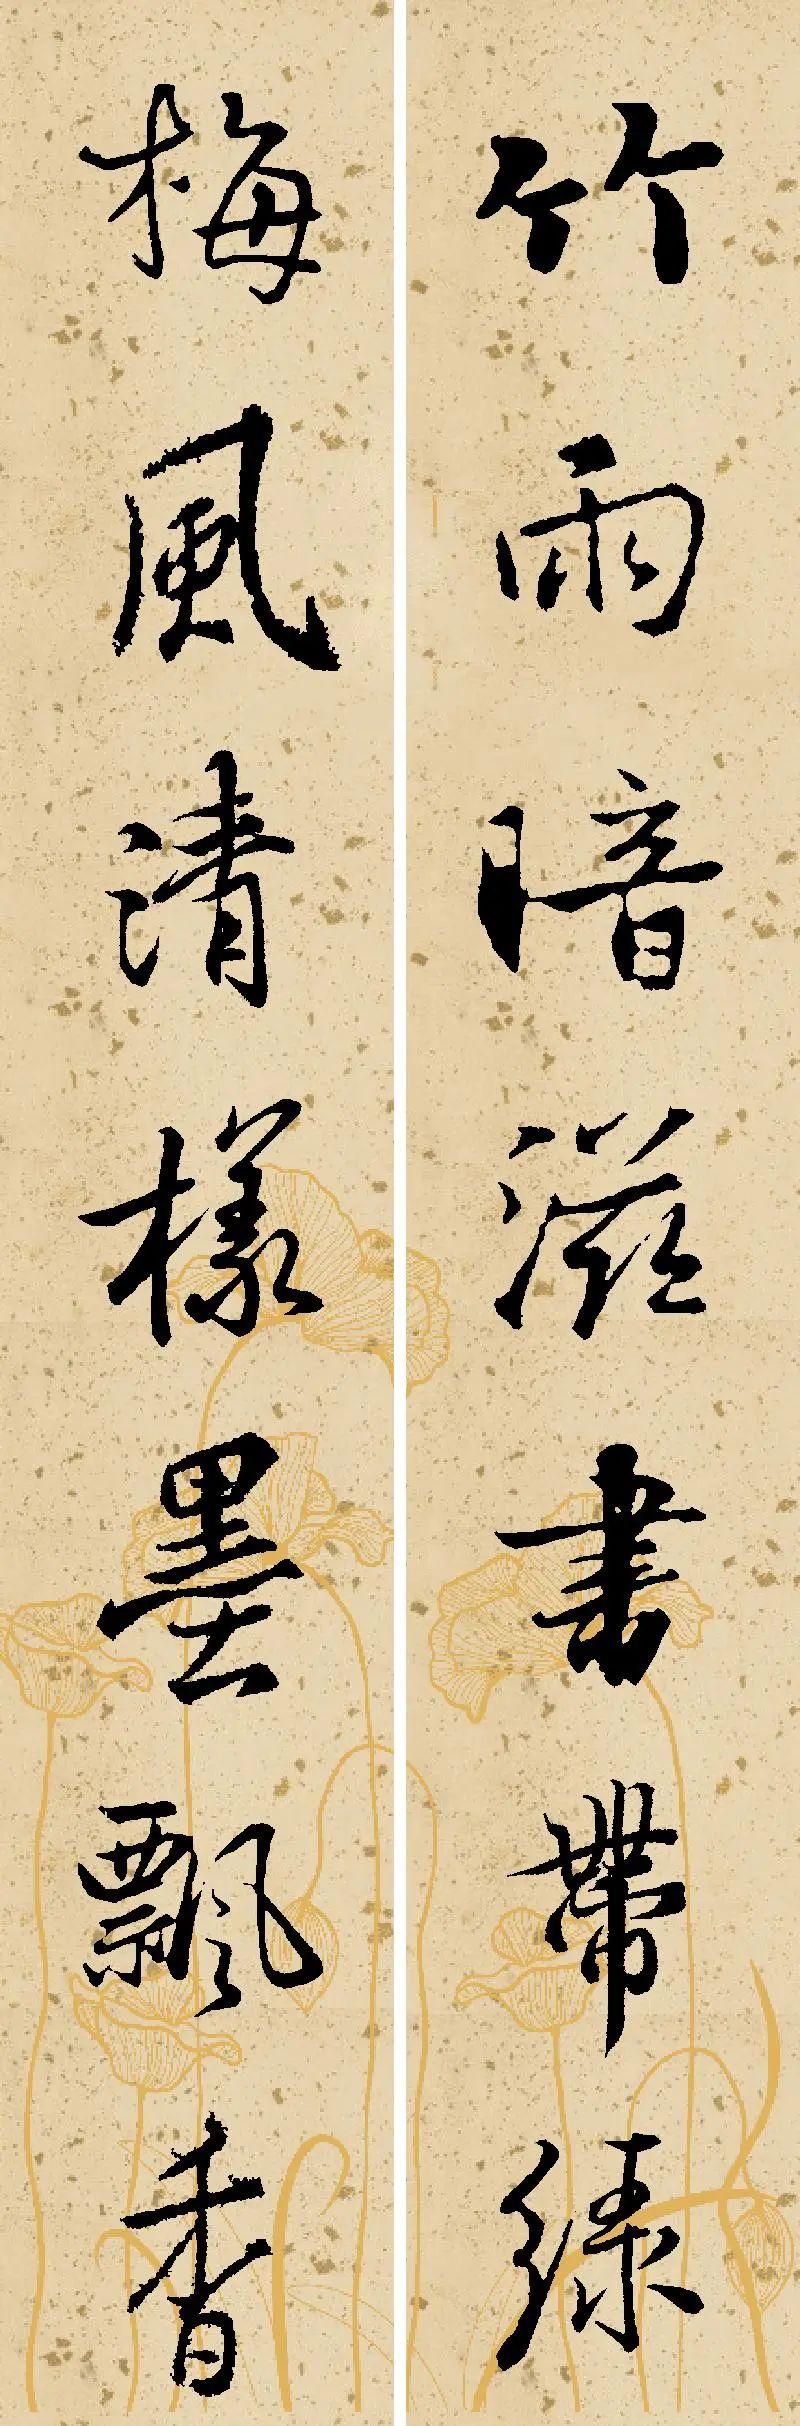 竹雨暗滋書帶綠
梅風清樣墨飄香